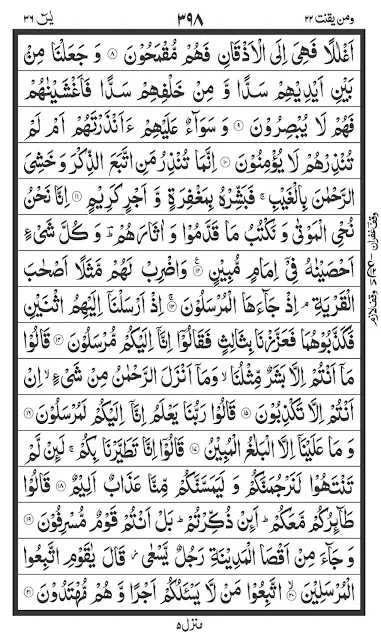 ومن يقنت ٢٢ ٣٩٨ يٰسٓ ٣٦
اَغْلٰلًا فَهِيَ اِلَى الْاَذْقَانِ فَهُمْ مُّقْمَحُوْنَ ۝٨ وَ جَعَلْنَا مِنْۢ
بَيْنِ اَيْدِيْهِمْ سَدًّا وَّ مِنْ خَلْفِهِمْ سَدًّا فَاَغْشَيْنٰهُمْ
فَهُمْ لَا يُبْصِرُوْنَ ۝٩ وَ سَوَآءٌ عَلَيْهِمْ ءَاَنْذَرْتَهُمْ اَمْ لَمْ
تُنْذِرْهُمْ لَا يُؤْمِنُوْنَ ۝١٠ اِنَّمَا تُنْذِرُ مَنِ اتَّبَعَ الذِّكْرَ وَ خَشِيَ
الرَّحْمٰنَ بِالْغَيْبِ ۚ فَبَشِّرْهُ بِمَغْفِرَةٍ وَّ اَجْرٍ كَرِيْمٍ ۝١١ اِنَّا نَحْنُ
نُحْيِ الْمَوْتٰى وَ نَكْتُبُ مَا قَدَّمُوْا وَ اٰثَارَهُمْ ؕ وَ كُلَّ شَيْءٍ
اَحْصَيْنٰهُ فِيْۤ اِمَامٍ مُّبِيْنٍ ۝١٢ وَ اضْرِبْ لَهُمْ مَّثَلًا اَصْحٰبَ
الْقَرْيَةِ ۘ اِذْ جَآءَهَا الْمُرْسَلُوْنَ ۝١٣ اِذْ اَرْسَلْنَاۤ اِلَيْهِمُ اثْنَيْنِ
فَكَذَّبُوْهُمَا فَعَزَّزْنَا بِثَالِثٍ فَقَالُوْۤا اِنَّاۤ اِلَيْكُمْ مُّرْسَلُوْنَ ۝١٤ قَالُوْا
مَاۤ اَنْتُمْ اِلَّا بَشَرٌ مِّثْلُنَا ۙ وَ مَاۤ اَنْزَلَ الرَّحْمٰنُ مِنْ شَيْءٍ ۙ اِنْ
اَنْتُمْ اِلَّا تَكْذِبُوْنَ ۝١٥ قَالُوْا رَبُّنَا يَعْلَمُ اِنَّاۤ اِلَيْكُمْ لَمُرْسَلُوْنَ ۝١٦
وَ مَا عَلَيْنَاۤ اِلَّا الْبَلٰغُ الْمُبِيْنُ ۝١٧ قَالُوْۤا اِنَّا تَطَيَّرْنَا بِكُمْ ۚ لَئِنْ لَّمْ
تَنْتَهُوْا لَنَرْجُمَنَّكُمْ وَ لَيَمَسَّنَّكُمْ مِّنَّا عَذَابٌ اَلِيْمٌ ۝١٨ قَالُوْا
طَآئِرُكُمْ مَّعَكُمْ ؕ اَئِنْ ذُكِّرْتُمْ ؕ بَلْ اَنْتُمْ قَوْمٌ مُّسْرِفُوْنَ ۝١٩
وَ جَآءَ مِنْ اَقْصَا الْمَدِيْنَةِ رَجُلٌ يَّسْعٰى ؗ قَالَ يٰقَوْمِ اتَّبِعُوا
الْمُرْسَلِيْنَ ۝٢٠ اتَّبِعُوْا مَنْ لَّا يَسْـَٔلُكُمْ اَجْرًا وَّ هُمْ مُّهْتَدُوْنَ ۝٢١
وقف غفران
وقف لازم
منزل ٥